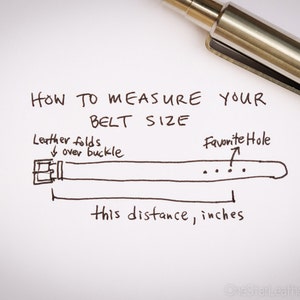 HOW TO MEASURE YOUR
BELT SIZE
Leather folds
over buckle
Favorite Hole
this distance, inches